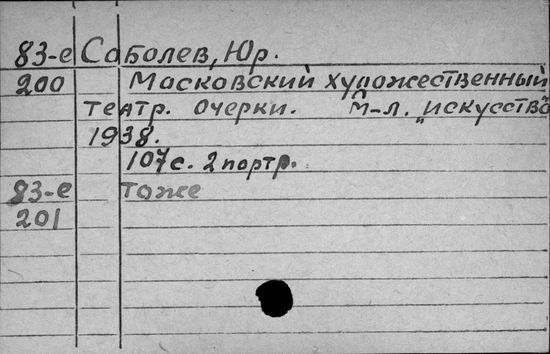 83-е Соболев, Юр.
200 Московский художественный
театр. Очерки. М-л. „искусство"
1938.
107 с. 2 портр.
83-е тоже
201